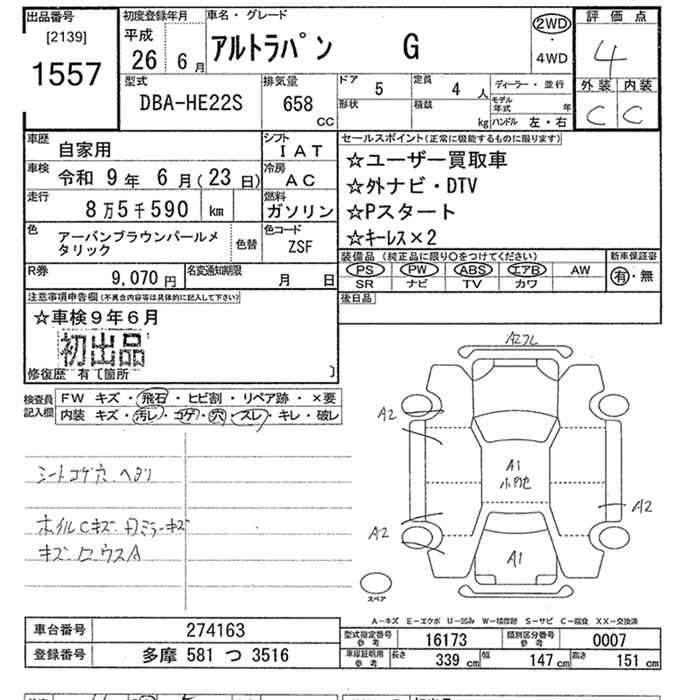 出品番号
[2139]
1557
初度登録年月
平成
26 6月
車名・グレード
アルトラパン G
2WD
・
4WD
評価点
4
外装 内装
C C
型式
DBA-HE22S
排気量
658
CC
ドア
5
定員
4 人
形状
積載
kg
ディーラー・並行
モデル年式 年
ハンドル 左・右
車歴
自家用
シフト
IAT
車検
令和 9年 6月(23日)
冷房
AC
走行
8万5千590 km
燃料
ガソリン
色
アーバンブラウンパールメタリック
色替
色コード
ZSF
R券
9,070 円
名変通知期限
月 日
セールスポイント(正常に機能するものに限ります)
☆ユーザー買取車
☆外ナビ・DTV
☆Pスタート
☆キーレス×2
装備品 (純正品に限り○をつけてください)
PS PW ABS エアB AW
SR ナビ TV カワ
新車保証書
有・無
後日品
注意事項申告欄(不具合内容等は具体的に記入して下さい)
☆車検9年6月
初出品
修復歴 有〔箇所 〕
検査員
記入欄
FW キズ・飛石・ヒビ割・リペア跡・×要
内装 キズ・汚レ・コゲ・穴・スレ・キレ・破レ
シートコゲ穴、ヘタリ
ホイルCキズ
キズ
A2
A2
A1
小凹他
A2
A2
A1
スペア
A-キズ E-エクボ U-凹み W-補修跡 S-サビ C-腐食 XX-交換済
車台番号
274163
登録番号
多摩 581 つ 3516
型式指定番号
参考
16173
類別区分番号
参考
0007
車庫証明用
参考
長さ
339 cm
幅
147 cm
高さ
151 cm